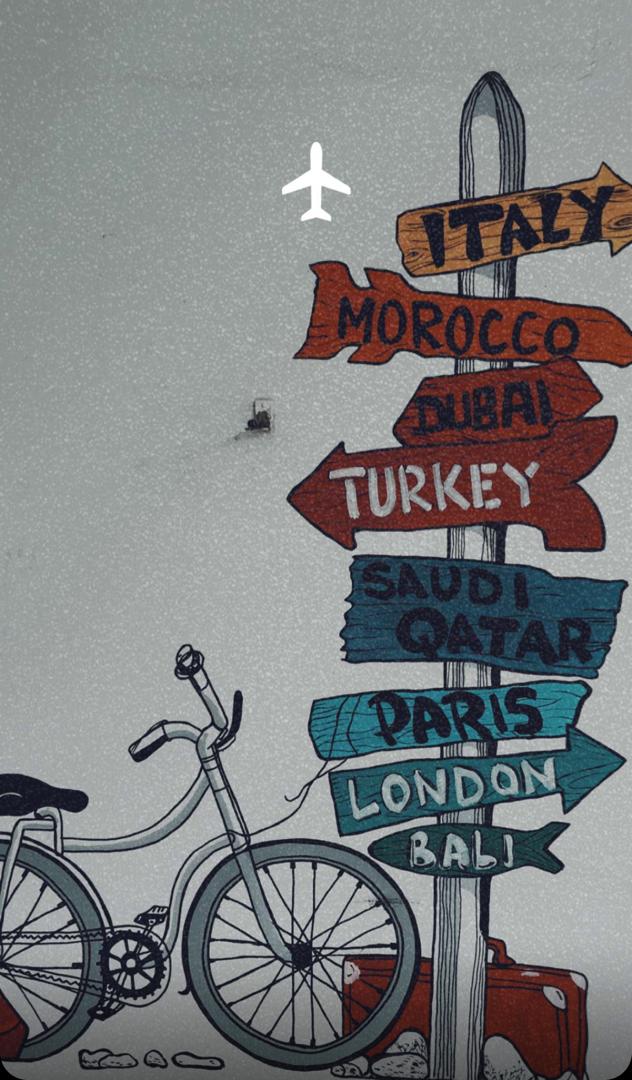 ITALY
MOROCCO
DUBAI
TURKEY
SAUDI
QATAR
PARIS
LONDON
BALI